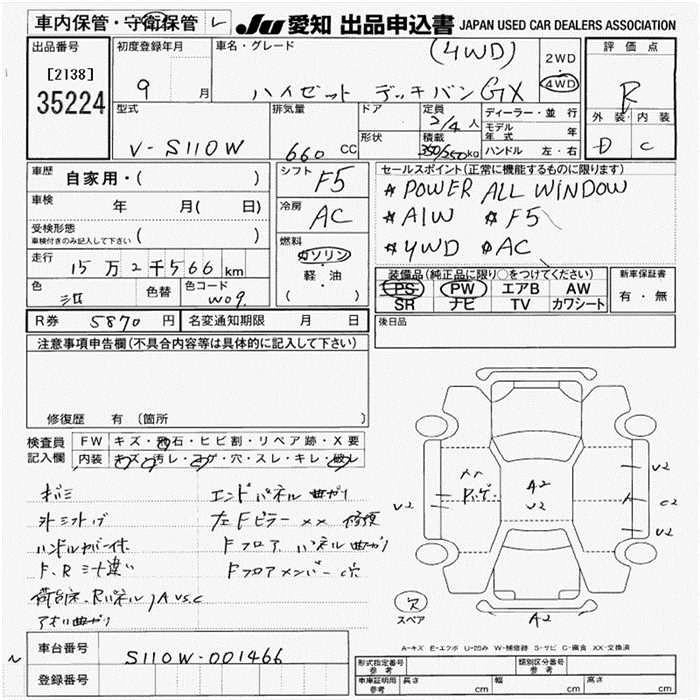 車内保管・守衛保管 レ JU 愛知 出品申込書 JAPAN USED CAR DEALERS ASSOCIATION
出品番号 [2138] 35224
初度登録年月 9 月
車名・グレード (4WD)
ハイゼット デッキバン GX
2WD 4WD
評価点 R
外装・内装 D C
型式 V-S110W
排気量 660 CC
ドア
形状
定員 2/4 人
積載 350/250 kg
ディーラー・並行
モデル年式 年
ハンドル 左・右
車歴 自家用・( )
車検 年 月( 日)
受検形態 ( )
車検付きのみ記入して下さい
走行 15万2千566 km
色 シロ 色替 色コード W09
シフト F5
冷房 AC
燃料 ガソリン・軽・油 ( )
セールスポイント(正常に機能するものに限ります)
* POWER ALL WINDOW
* A/W * F5
* 4WD * AC
装備品(純正品に限り○をつけてください)
PS PW エアB AW
SR ナビ TV カワシート
新車保証書 有・無
R券 5870 円 名変通知期限 月 日
後日品
注意事項申告欄(不具合内容等は具体的に記入して下さい)
修復歴 有 (箇所 )
検査員記入欄
FW キズ・飛石・ヒビ割・リペア跡・X要
内装 キズ・汚レ・コゲ・穴・スレ・キレ・破レ
エンドパネル曲ガリ
左Fピラー XX 修復
ハンドルカバー付 Fフロア、パネル曲ガリ
F、R ミゾ違い Fフロアメンバー穴
荷台床、Rパネル、A V S.C
アオリ曲ガリ
XX
A2
V2
V2
V2
C2
V2
A2
欠
スペア
A-キズ E-エクボ U-凹み W-補修跡 S-サビ C-腐食 XX-交換済
車台番号 S110W-001466
登録番号
形式指定番号 参考 類別区分番号 参考
車庫証明用 参考 長さ cm 幅 cm 高さ cm